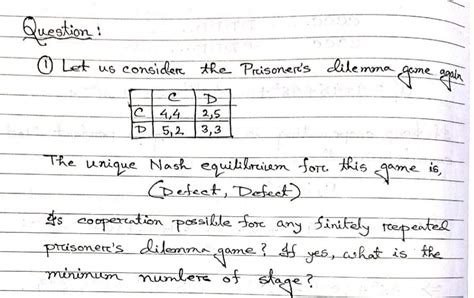 Question:
① Let us consider the Prisoner's dilemma game again
C D
C 4,4 2,5
D 5,2 3,3
The unique Nash equilibrium for this game is,
(Defect, Defect)
Is cooperation possible for any finitely repeated
prisoner's dilemma game? If yes, what is the
minimum numbers of stage?